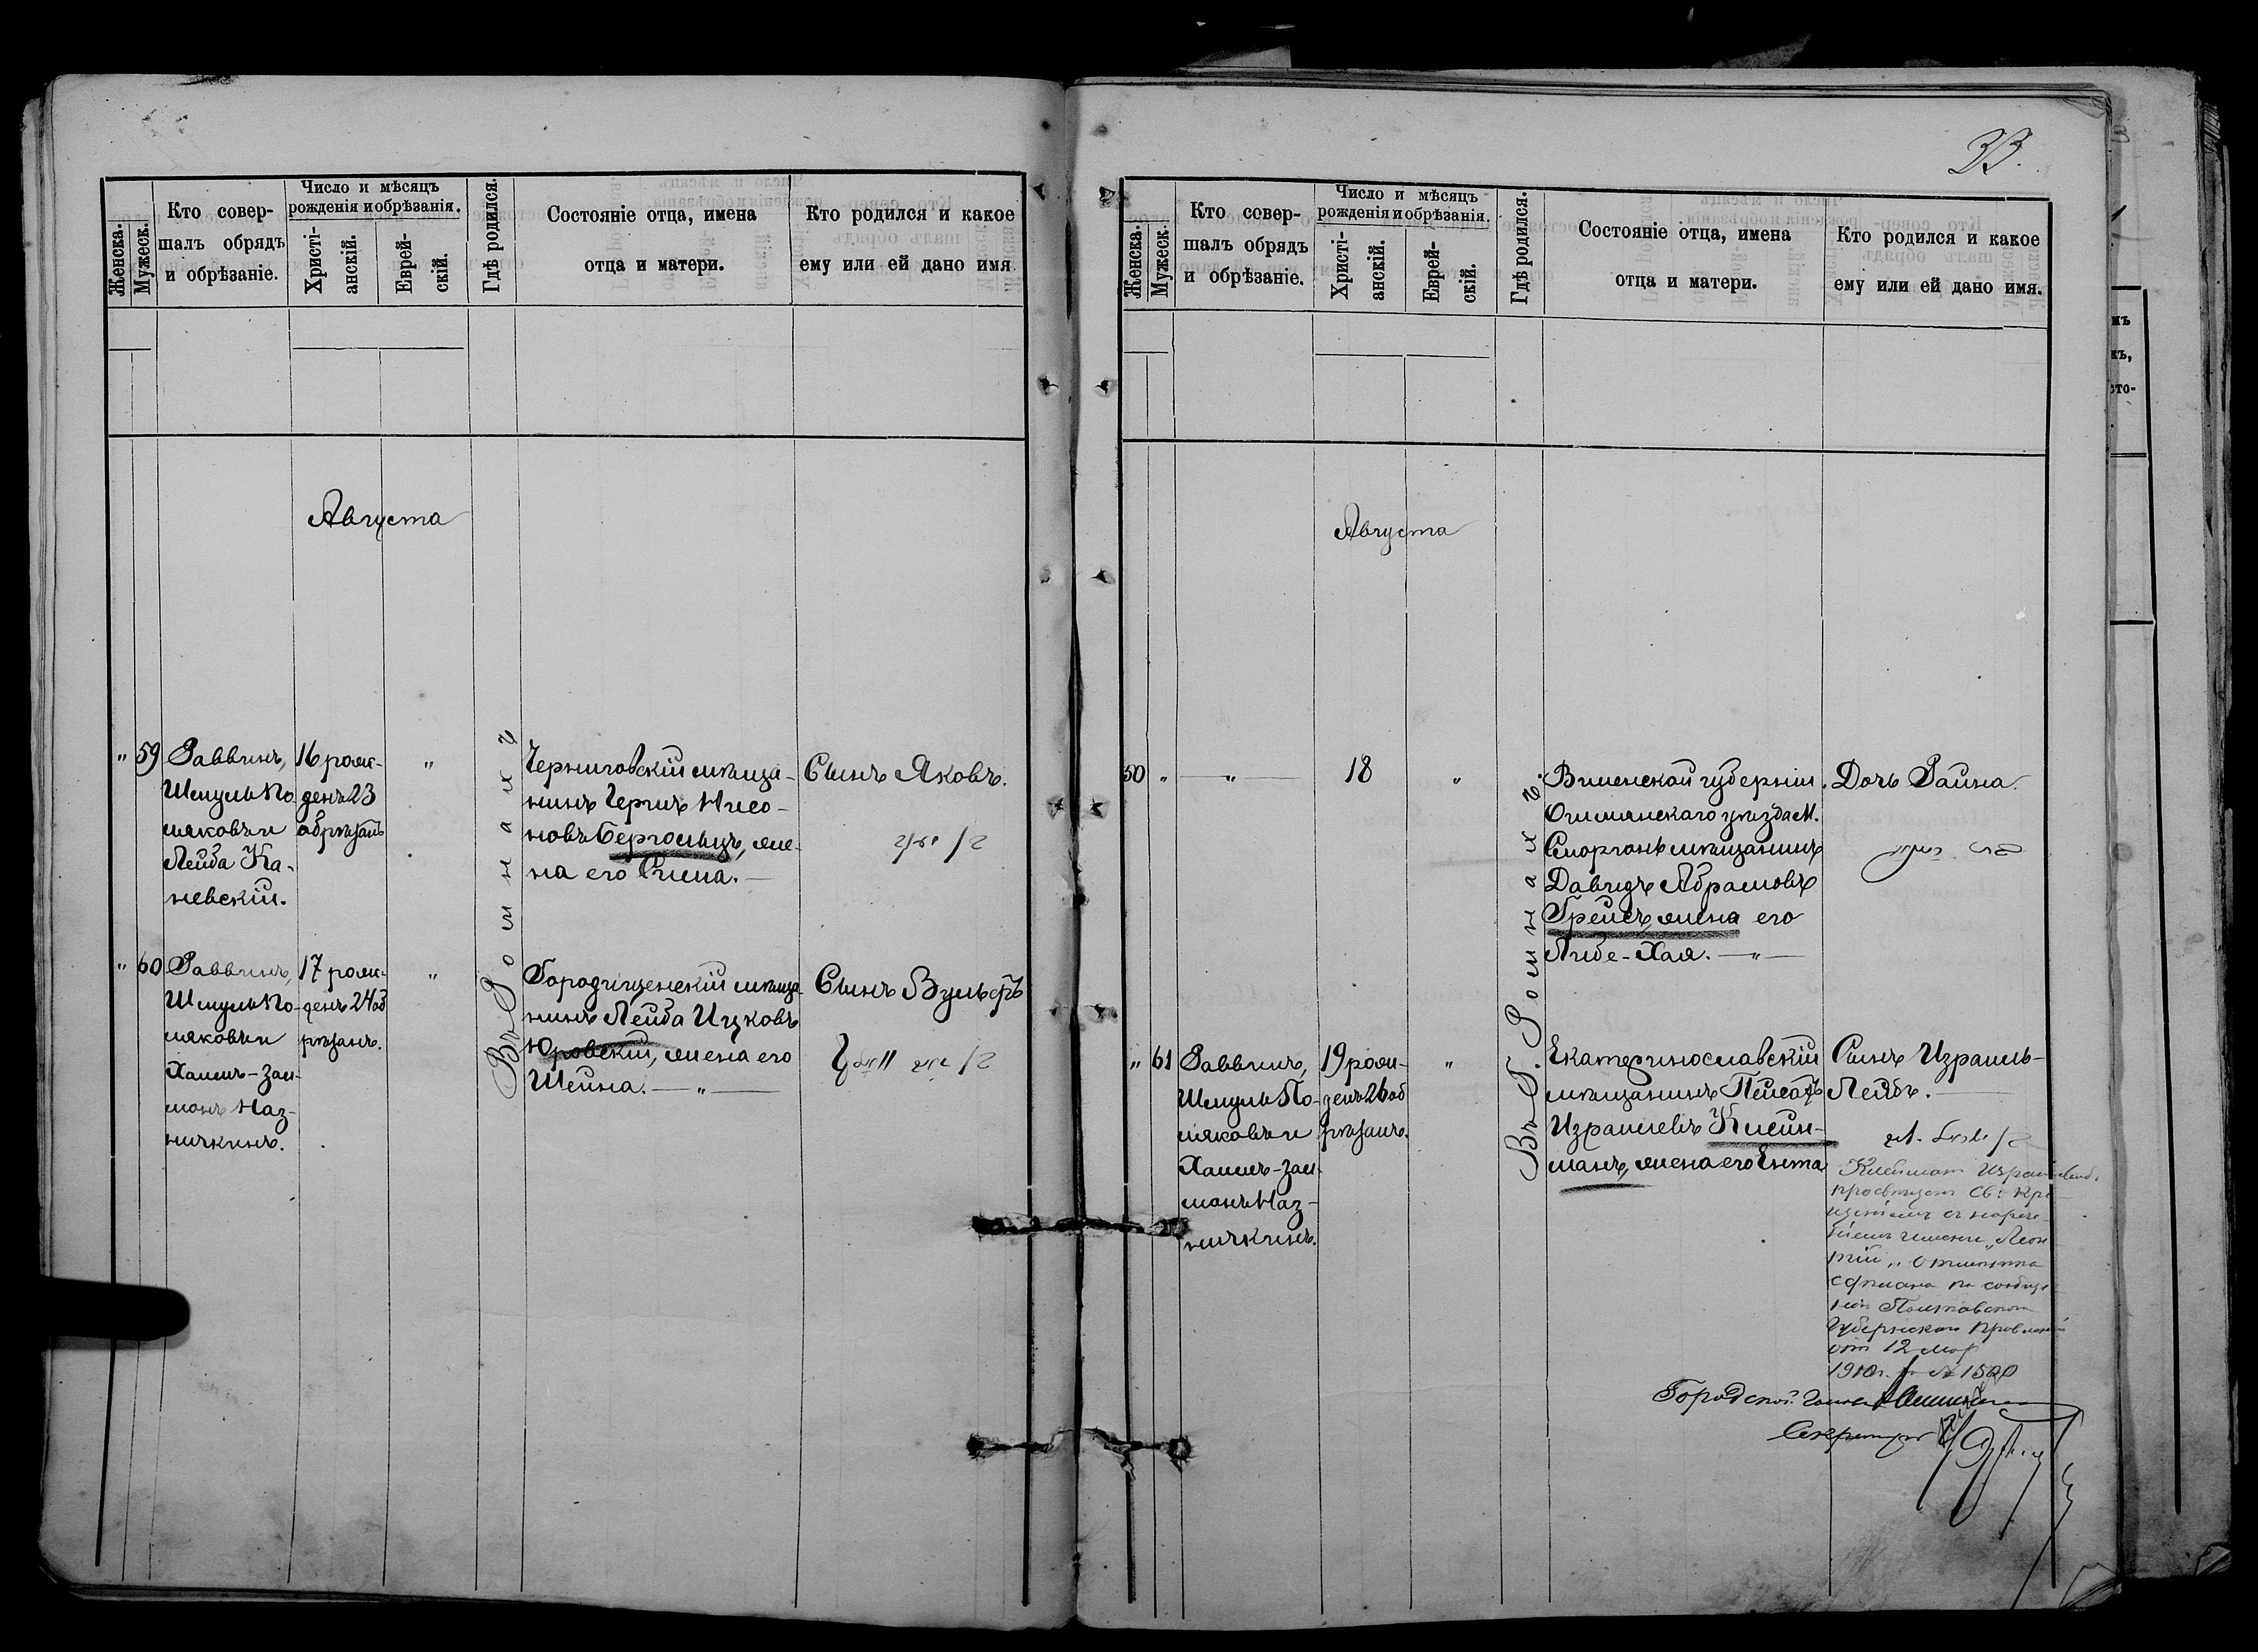 33.
Женска.
Мужеск.
Кто совер-
шалъ обрядъ
и обрѣзаніе.
Число и мѣсяцъ
рожденія и обрѣзанія.
Христі-
анскій.
Еврей-
скій.
Гдѣ родился.
Состояніе отца, имена
отца и матери.
Кто родился и какое
ему или ей дано имя
Августа
" 59
Раввинъ,
Шмуль По
ляковъ и
Лейба Ка-
невскій.
16 рож-
денъ 23
обрѣзанъ
"
Въ г. Ромнахъ
Черниговскій мѣща-
нинъ Герцъ Нисо-
новъ Бергольцъ, же-
на его Рися.—
Сынъ Яковъ.
" 60
Раввинъ,
Шмуль По-
ляковъ и
Хаимъ-Зал-
манъ Наз-
ничкинъ.
17 рож-
денъ 24 об
рѣзанъ.
"
Городищенскій мѣща-
нинъ Лейба Ицковъ
Юровскій, жена его
Шейна.—"—
Сынъ Вульфъ
Женска.
Мужеск.
Кто совер-
шалъ обрядъ
и обрѣзаніе.
Число и мѣсяцъ
рожденія и обрѣзанія.
Христі-
анскій.
Еврей-
скій.
Гдѣ родился.
Состояніе отца, имена
отца и матери.
Кто родился и какое
ему или ей дано имя.
Августа
50 "
—"—
18
"
Въ г. Ромнахъ.
Виленской губерніи
Ошмянскаго уѣзда М.
Сморгонь мѣщанинъ
Давидъ Абрамовъ
Грейсъ, жена его
Либе-Хая.—"—
Дочь Райна.
" 61
Раввинъ,
Шмуль По-
ляковъ и
Хаимъ-Зал-
манъ Наз-
ничкинъ.
19 рож-
денъ 26 об
рѣзанъ.
"
Екатеринославскій
мѣщанинъ Пейсахъ
Израилевъ Клейн-
манъ, жена его Ента
Сынъ Израиль-
Лейбъ.
просвѣщен Св. Кре
щеніемъ съ нарече-
ніемъ имени „Леон
тій„ отмѣтка
сдѣлана по сообще
нію Полтавскаго
Губернскаго Правленія
от 12 мар
1910 г. № 1500
Городской Голова
Секретарь